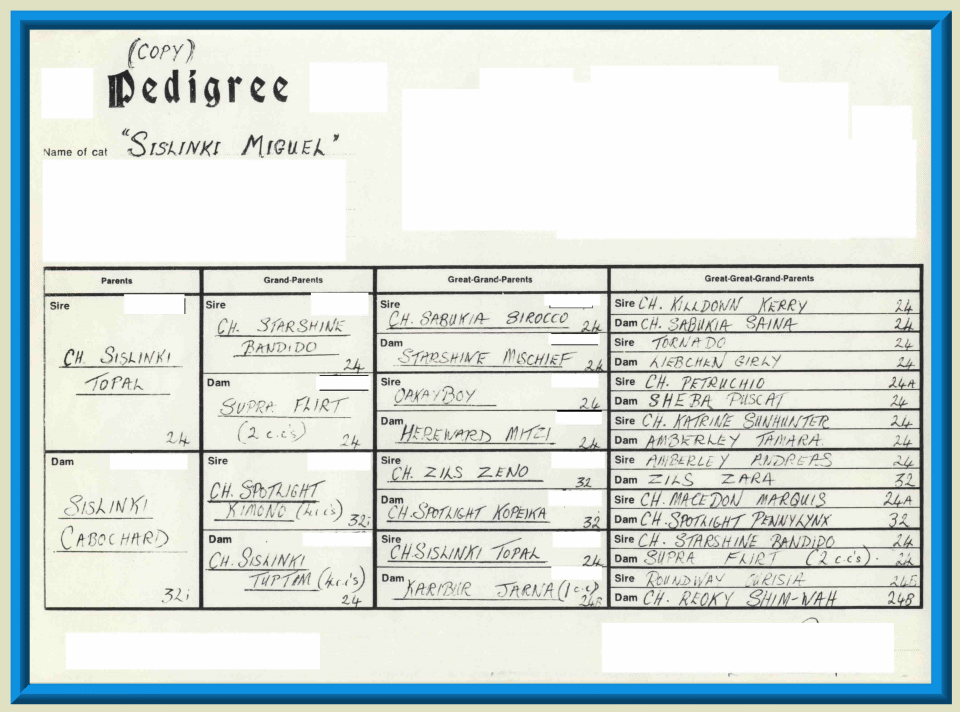 (COPY)
Pedigree
Name of cat "SISLINKI MIGUEL"
Parents
Grand-Parents
Great-Grand-Parents
Great-Great-Grand-Parents
Sire
CH. SISLINKI
TOPAL
24
Dam
SISLINKI
CABOCHARD
32i
Sire
CH. STARSHINE
BANDIDO
24
Dam
SUPRA FLIRT
(2 c.c's) 24
Sire
CH. SPOTLIGHT
KIMONO 32i
Dam
CH. SISLINKI
TUPTIM
24
Sire
CH. SABUKIA SIROCCO 24
Dam
STARSHINE MISCHIEF 24
Sire
OAKAYBOY 24
Dam
HEREWARD MITZI 24
Sire
CH. ZILS ZENO 32
Dam
CH. SPOTLIGHT KOPEIKA 32
Sire
CH. SISLINKI TOPAL 24
Dam
KARIBUR JARNA (1 c.c)
24B
Sire CH. KILLDOWN KERRY 24
Dam CH. SABUKIA SAINA 24
Sire TORNADO 24
Dam LIEBCHEN GIRLY 24
Sire CH. PETRUCHIO 24A
Dam SHEBA PUSCAT 24
Sire CH. KATRINE SUNHUNTER 24
Dam AMBERLEY TAMARA 24
Sire AMBERLEY ANDREAS 24
Dam ZILS ZARA 32
Sire CH. MACEDON MARQUIS 24A
Dam CH. SPOTLIGHT PENNYLYNX 32
Sire CH. STARSHINE BANDIDO 24
Dam SUPRA FLIRT (2 c.c's). 24
Sire ROUNDWAY 24B
Dam CH. REOKY SHIM-WAH 24B